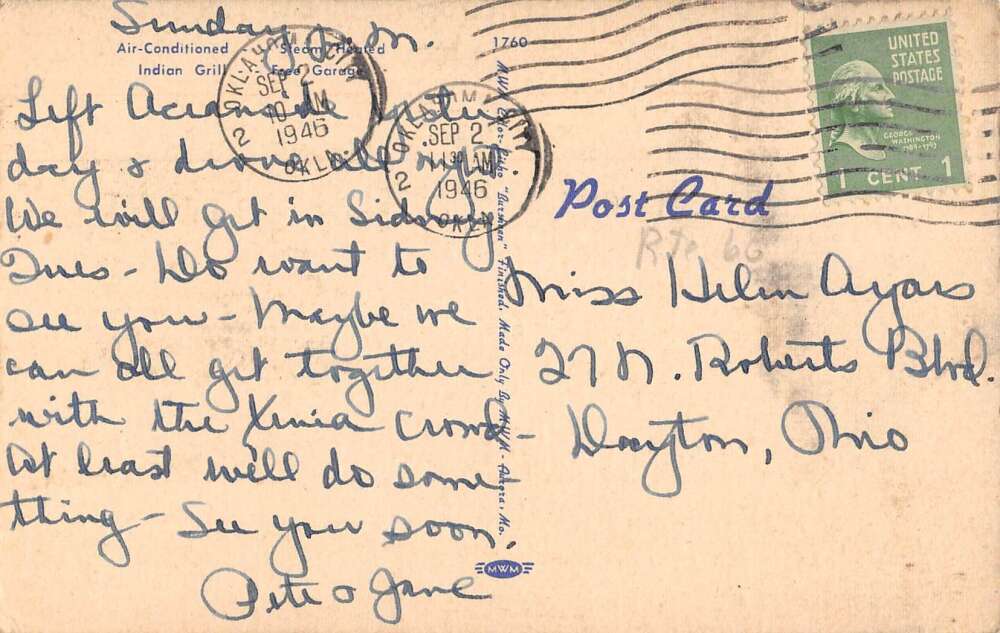 Sunday P.M.
Air-Conditioned Steam Heated
Indian Grill Free Garage
Left yester
day & drove all night
We will get in Sidney
Tues - Do want to
see you - Maybe we
can all get together
with the Xenia crowd -
At least we'll do some
thing - See you soon.
Pete & Jane
OKLAHOMA CITY
SEP 2
10 AM
1946
OKLA.
2
OKLAHOMA CITY
SEP 2
11 AM
1946
OKLA.
2
1760
MWM Color-Litho Finished. Made Only By MWM - Aurora, Mo.
MWM
UNITED
STATES
POSTAGE
GEORGE
WASHINGTON
1789-1797
1 CENT 1
Post Card
Rte 66
Miss Helen Ayars
27 N. Roberts Blvd.
Dayton, Ohio